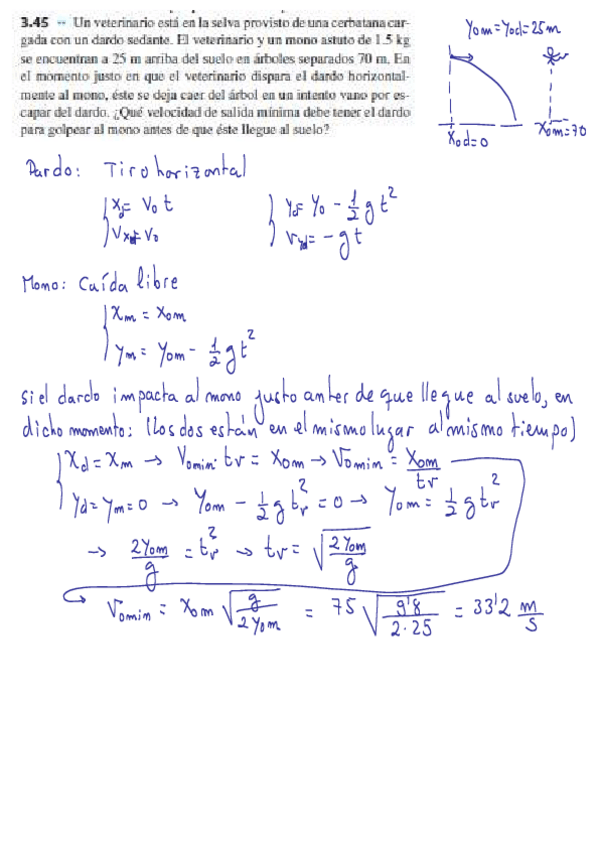 3.45 •• Un veterinario está en la selva provisto de una cerbatana car-
gada con un dardo sedante. El veterinario y un mono astuto de 1.5 kg
se encuentran a 25 m arriba del suelo en árboles separados 70 m. En
el momento justo en que el veterinario dispara el dardo horizontal-
mente al mono, éste se deja caer del árbol en un intento vano por es-
capar del dardo. ¿Qué velocidad de salida mínima debe tener el dardo
para golpear al mono antes de que éste llegue al suelo?
Yom = Yod = 25 m
Xod = 0 Xom = 70
Dardo: Tiro horizontal
Xd = Vo t Yd = Yo - 1/2 g t²
Vxd = Vo Vyd = - g t
Mono: Caída libre
Xm = Xom
Ym = Yom - 1/2 g t²
Si el dardo impacta al mono justo antes de que llegue al suelo, en
dicho momento: (Los dos están en el mismo lugar al mismo tiempo)
Xd = Xm → Vomin · tv = Xom → Vomin = Xom/tv
Yd = Ym = 0 → Yom - 1/2 g tv² = 0 → Yom = 1/2 g tv²
→ 2Yom/g = tv² → tv = √(2Yom/g)
Vomin = Xom √(g/2Yom) = 75 √(9'8/2·25) = 33'2 m/s